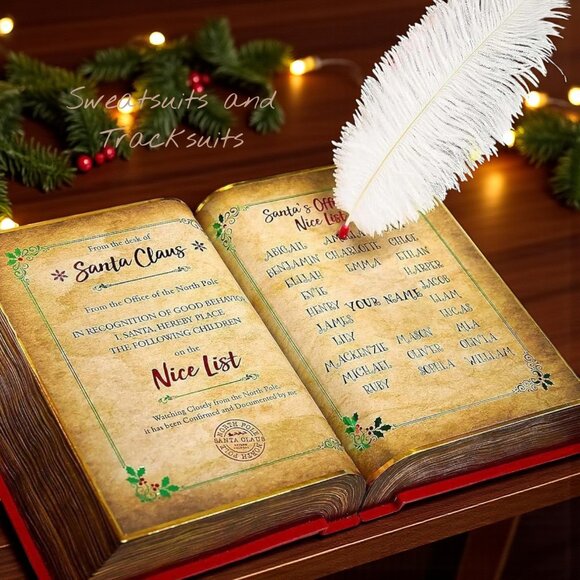 Sweatsuits and
Tracksuits
From the desk of
Santa Claus
From the Office of the North Pole
IN RECOGNITION OF GOOD BEHAVIOR
I, SANTA, HEREBY PLACE
THE FOLLOWING CHILDREN
on the
Nice List
Watching Closely from the North Pole,
it has been Confirmed and Documented by me
NORTH POLE
SANTA CLAUS
NORTH POLE
Santa's
Nice List
ABIGAIL
BENJAMIN CHARLOTTE CHLOE
ELIJAH EMMA ETHAN
EVIE HARPER
HENRY YOUR NAME JACOB
JAMES LIAM
LILY LUCAS
MACKENZIE MASON MIA
MICHAEL OLIVER OLIVIA
RUBY WILLIAM